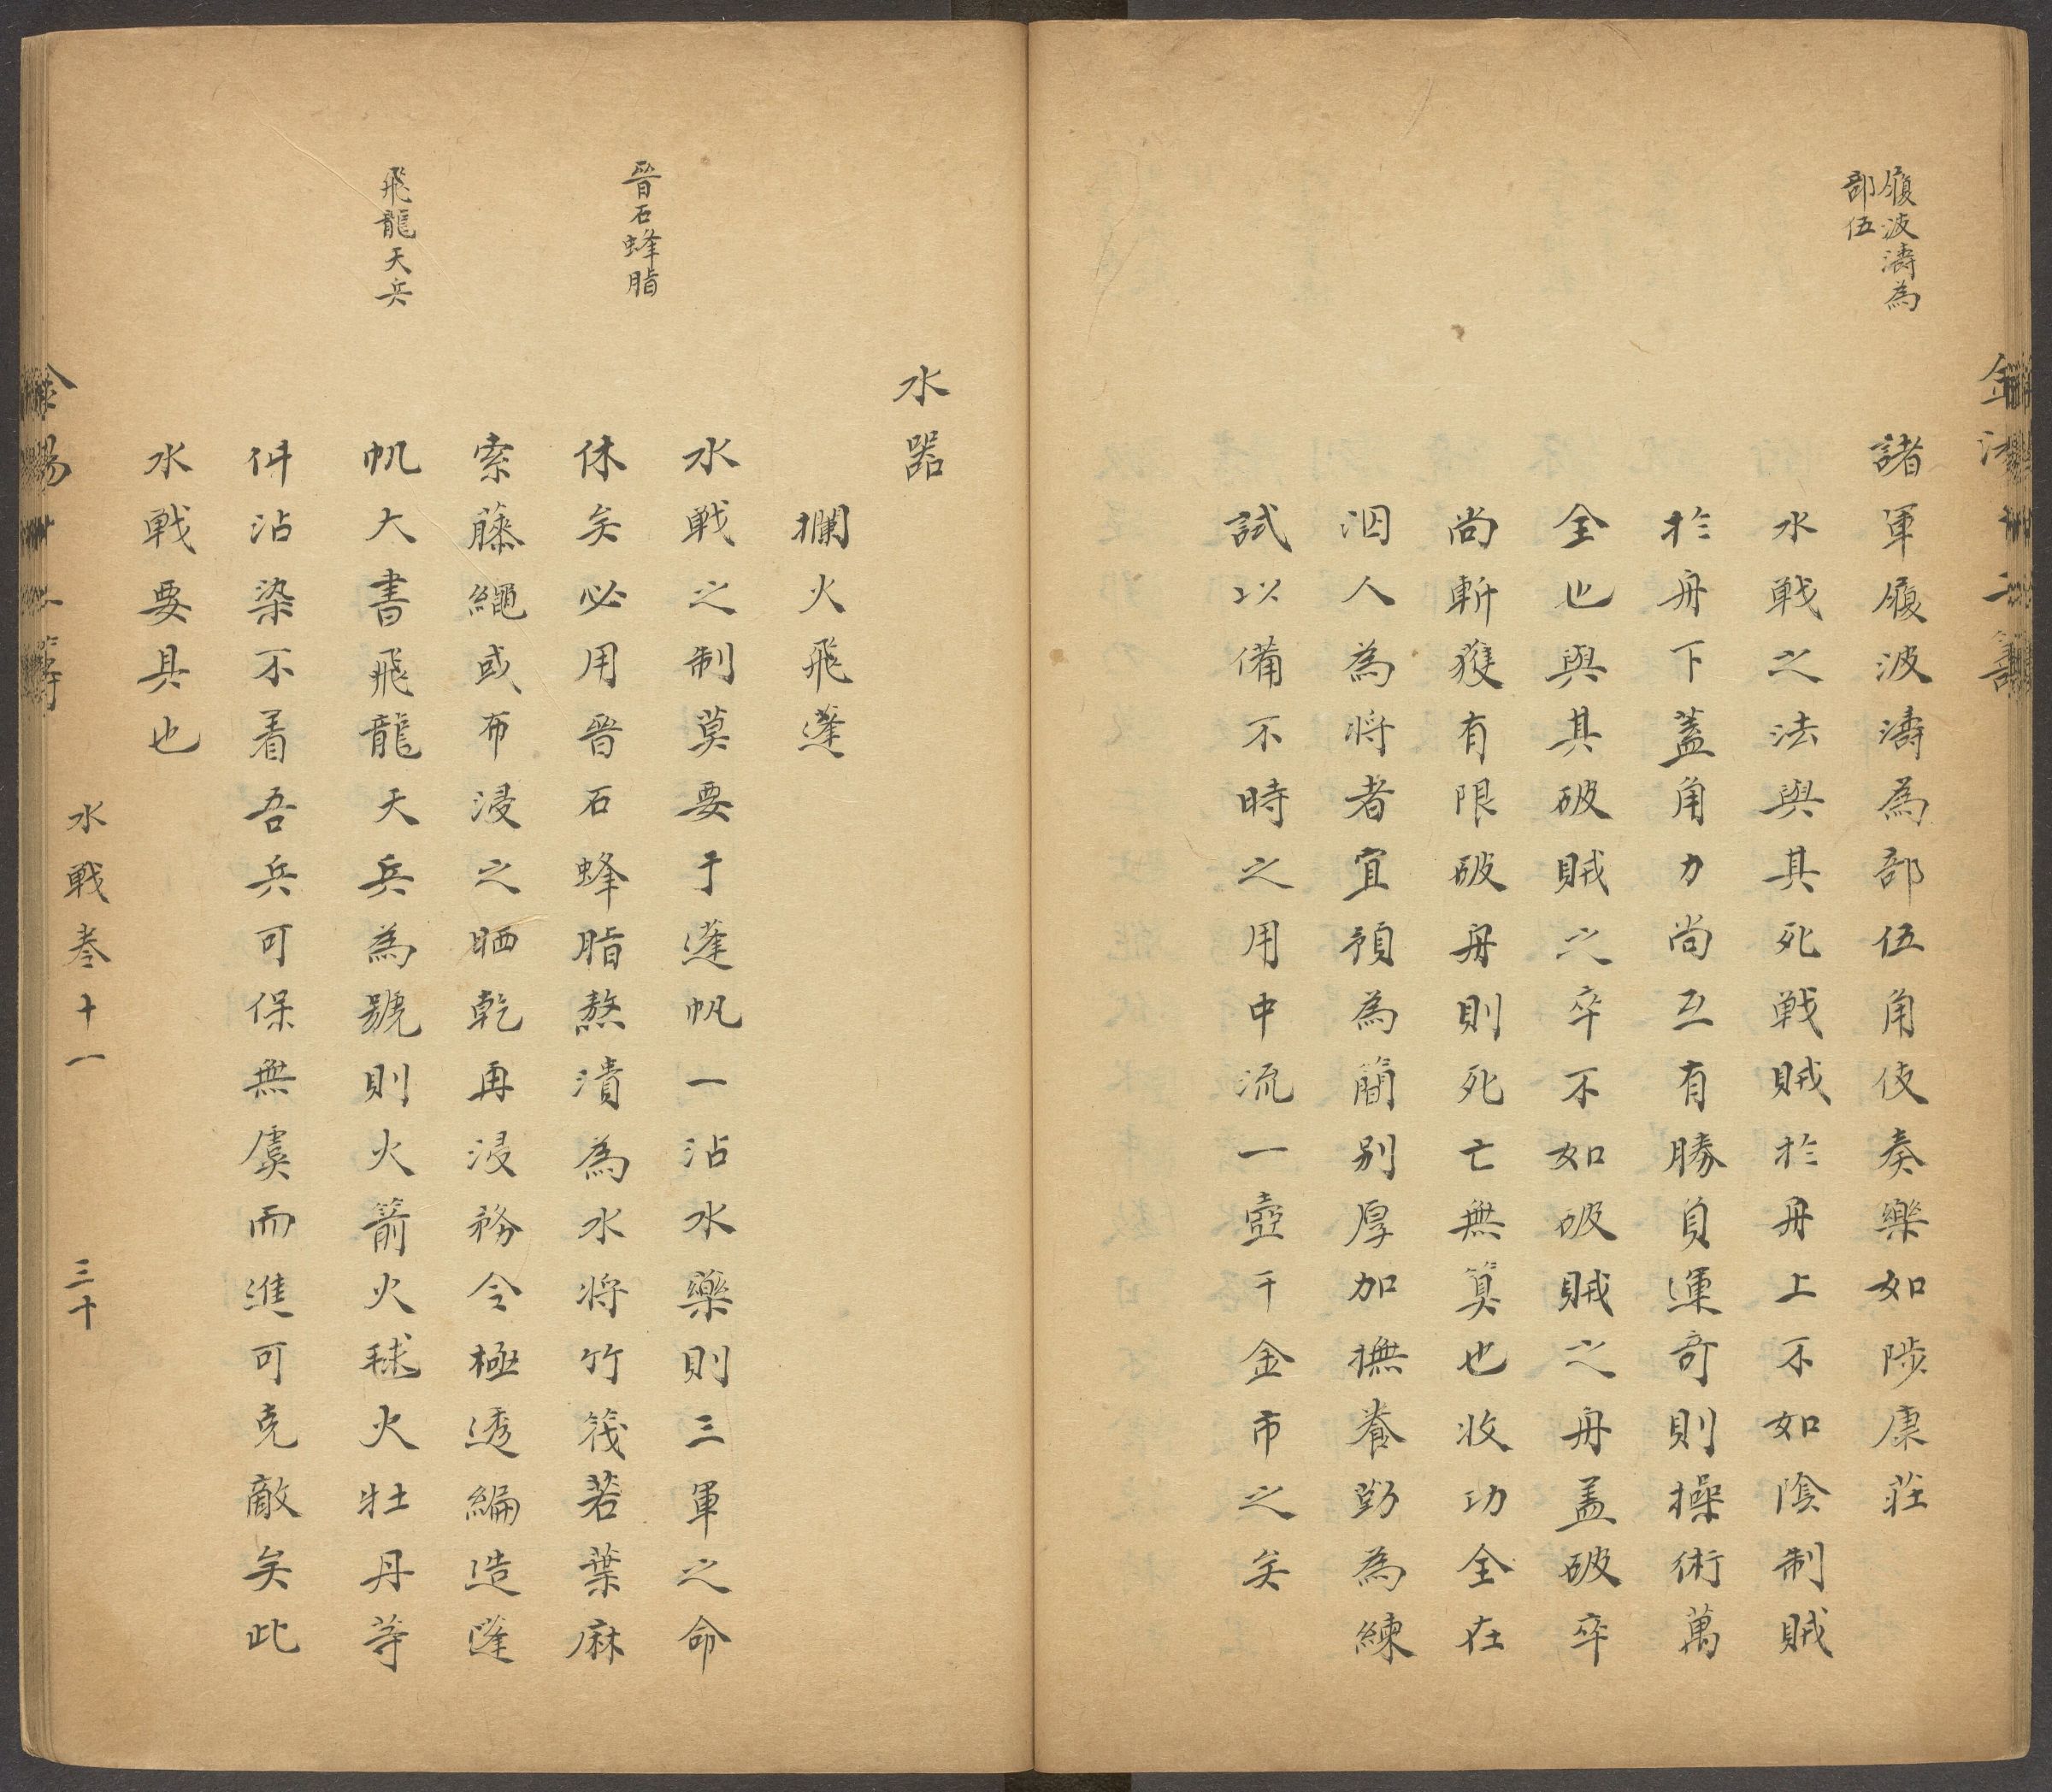 履波濤為
部伍
諸軍履波濤為部伍角伎奏樂如陟康莊
水戦之法與其死戦賊於舟上不如陰制賊
於舟下蓋角力尚互有勝負運奇則操術萬
全也與其破賊之卒不如破賊之舟盖破卒
尚斬獲有限破舟則死亡無筭也收功全在
泅人為将者宜預為簡别厚加撫養勤為練
試以備不時之用中流一壺千金市之矣
水器
攔火飛蓬
晉石蜂脂
水戦之制莫要于蓬帆一沾水藥則三軍之命
休矣必用晉石蜂脂熬漬為水将竹筏若葉麻
索藤繩或布浸之晒乾再浸務令極透編造蓬
飛龍天兵
帆大書飛龍天兵為號則火箭火毬火牡丹等
件沾染不着吾兵可保無虞而進可克敵矣此
水戦要具也
水戦叁十一
三十